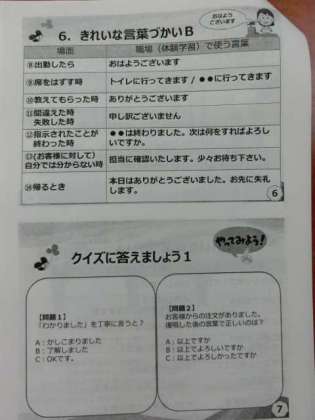 おはよう
ございます
6. きれいな言葉づかいB
場面 職場(体験学習)で使う言葉
⑧出勤したら おはようございます
⑨席をはずす時 トイレに行ってきます / ●●に行ってきます
⑩教えてもらった時 ありがとうございます
⑪間違えた時
失敗した時 申し訳ございません
⑫指示されたことが
終わった時 ●●は終わりました。次は何をすればよろし
いですか。
⑬(お客様に対して)
自分では分からない時 担当に確認いたします。少々お待ち下さい。
⑭帰るとき 本日はありがとうございました。お先に失礼
します。
6
やってみよう!
クイズに答えましょう1
【問題1】
「わかりました」を丁寧に言うと?
A:かしこまりました
B:了解しました
C:OKです。
【問題2】
お客様からの注文がありました。
復唱した後の言葉で正しいのは?
A:以上ですか
B:以上でよろしいですか
C:以上でよろしかったですか
7